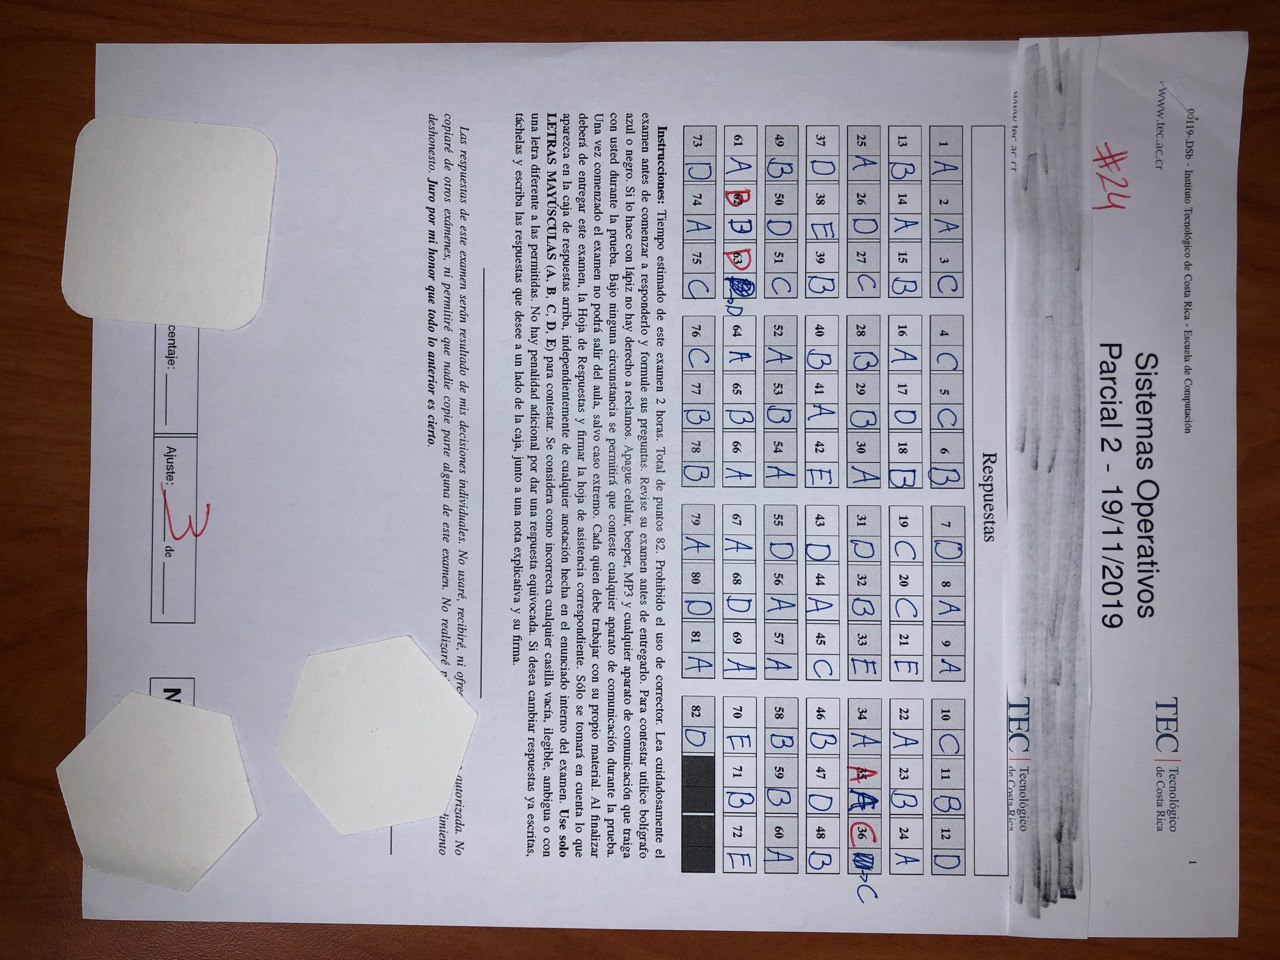 00119-DSb - Instituto Tecnológico de Costa Rica - Escuela de Computación 1
www.tec.ac.cr
TEC | Tecnológico
de Costa Rica
#24
Sistemas Operativos
Parcial 2 - 19/11/2019
www.tec.ac.cr
TEC | Tecnológico
de Costa Rica
Respuestas
1 A 2 A 3 C 4 C 5 C 6 B 7 D 8 A 9 A 10 C 11 B 12 D
13 B 14 A 15 B 16 A 17 D 18 B 19 C 20 C 21 E 22 A 23 B 24 A
25 A 26 D 27 C 28 B 29 B 30 A 31 D 32 B 33 E 34 A 35 A A 36 C →C
37 D 38 E 39 B 40 B 41 A 42 E 43 D 44 A 45 C 46 B 47 D 48 B
49 B 50 D 51 C 52 A 53 B 54 A 55 D 56 A 57 A 58 B 59 B 60 A
61 A 62 B B 63 D →D 64 A 65 B 66 A 67 A 68 D 69 A 70 E 71 B 72 E
73 D 74 A 75 C 76 C 77 B 78 B 79 A 80 D 81 A 82 D
Instrucciones: Tiempo estimado de este examen 2 horas. Total de puntos 82. Prohibido el uso de corrector. Lea cuidadosamente el
examen antes de comenzar a responderlo y formule sus preguntas. Revise su examen antes de entregarlo. Para contestar utilice bolígrafo
azul o negro. Si lo hace con lápiz no hay derecho a reclamos. Apague celular, beeper, MP3 y cualquier aparato de comunicación que traiga
con usted durante la prueba. Bajo ninguna circunstancia se permitirá que conteste cualquier aparato de comunicación durante la prueba.
Una vez comenzado el examen no podrá salir del aula, salvo caso extremo. Cada quien debe trabajar con su propio material. Al finalizar
deberá de entregar este examen, la Hoja de Respuestas y firmar la hoja de asistencia correspondiente. Sólo se tomará en cuenta lo que
aparezca en la caja de respuestas arriba, independientemente de cualquier anotación hecha en el enunciado interno del examen. Use solo
LETRAS MAYÚSCULAS (A, B, C, D, E) para contestar. Se considera como incorrecta cualquier casilla vacía, ilegible, ambigua o con
una letra diferente a las permitidas. No hay penalidad adicional por dar una respuesta equivocada. Si desea cambiar respuestas ya escritas,
táchelas y escriba las respuestas que desee a un lado de la caja, junto a una nota explicativa y su firma.
Las respuestas de este examen serán resultado de mis decisiones individuales. No usaré, recibiré, ni autorizada. No
copiaré de otros exámenes, ni permitiré que nadie copie parte alguna de este examen. No realizaré
deshonesto. Juro por mi honor que todo lo anterior es cierto.
centaje: Ajuste: 3 de N